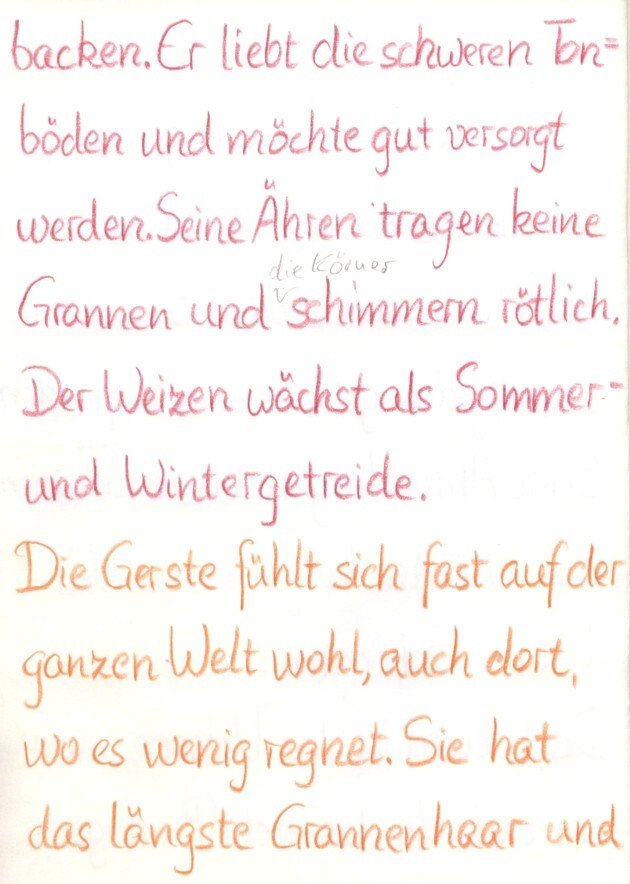 backen. Er liebt die schweren Ton=
böden und möchte gut versorgt
werden. Seine Ähren tragen keine
die Körner
Grannen und schimmern rötlich.
Der Weizen wächst als Sommer-
und Wintergetreide.
Die Gerste fühlt sich fast auf der
ganzen Welt wohl, auch dort,
wo es wenig regnet. Sie hat
das längste Grannenhaar und